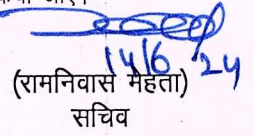 14/6/24
(रामनिवास मेहता)
सचिव